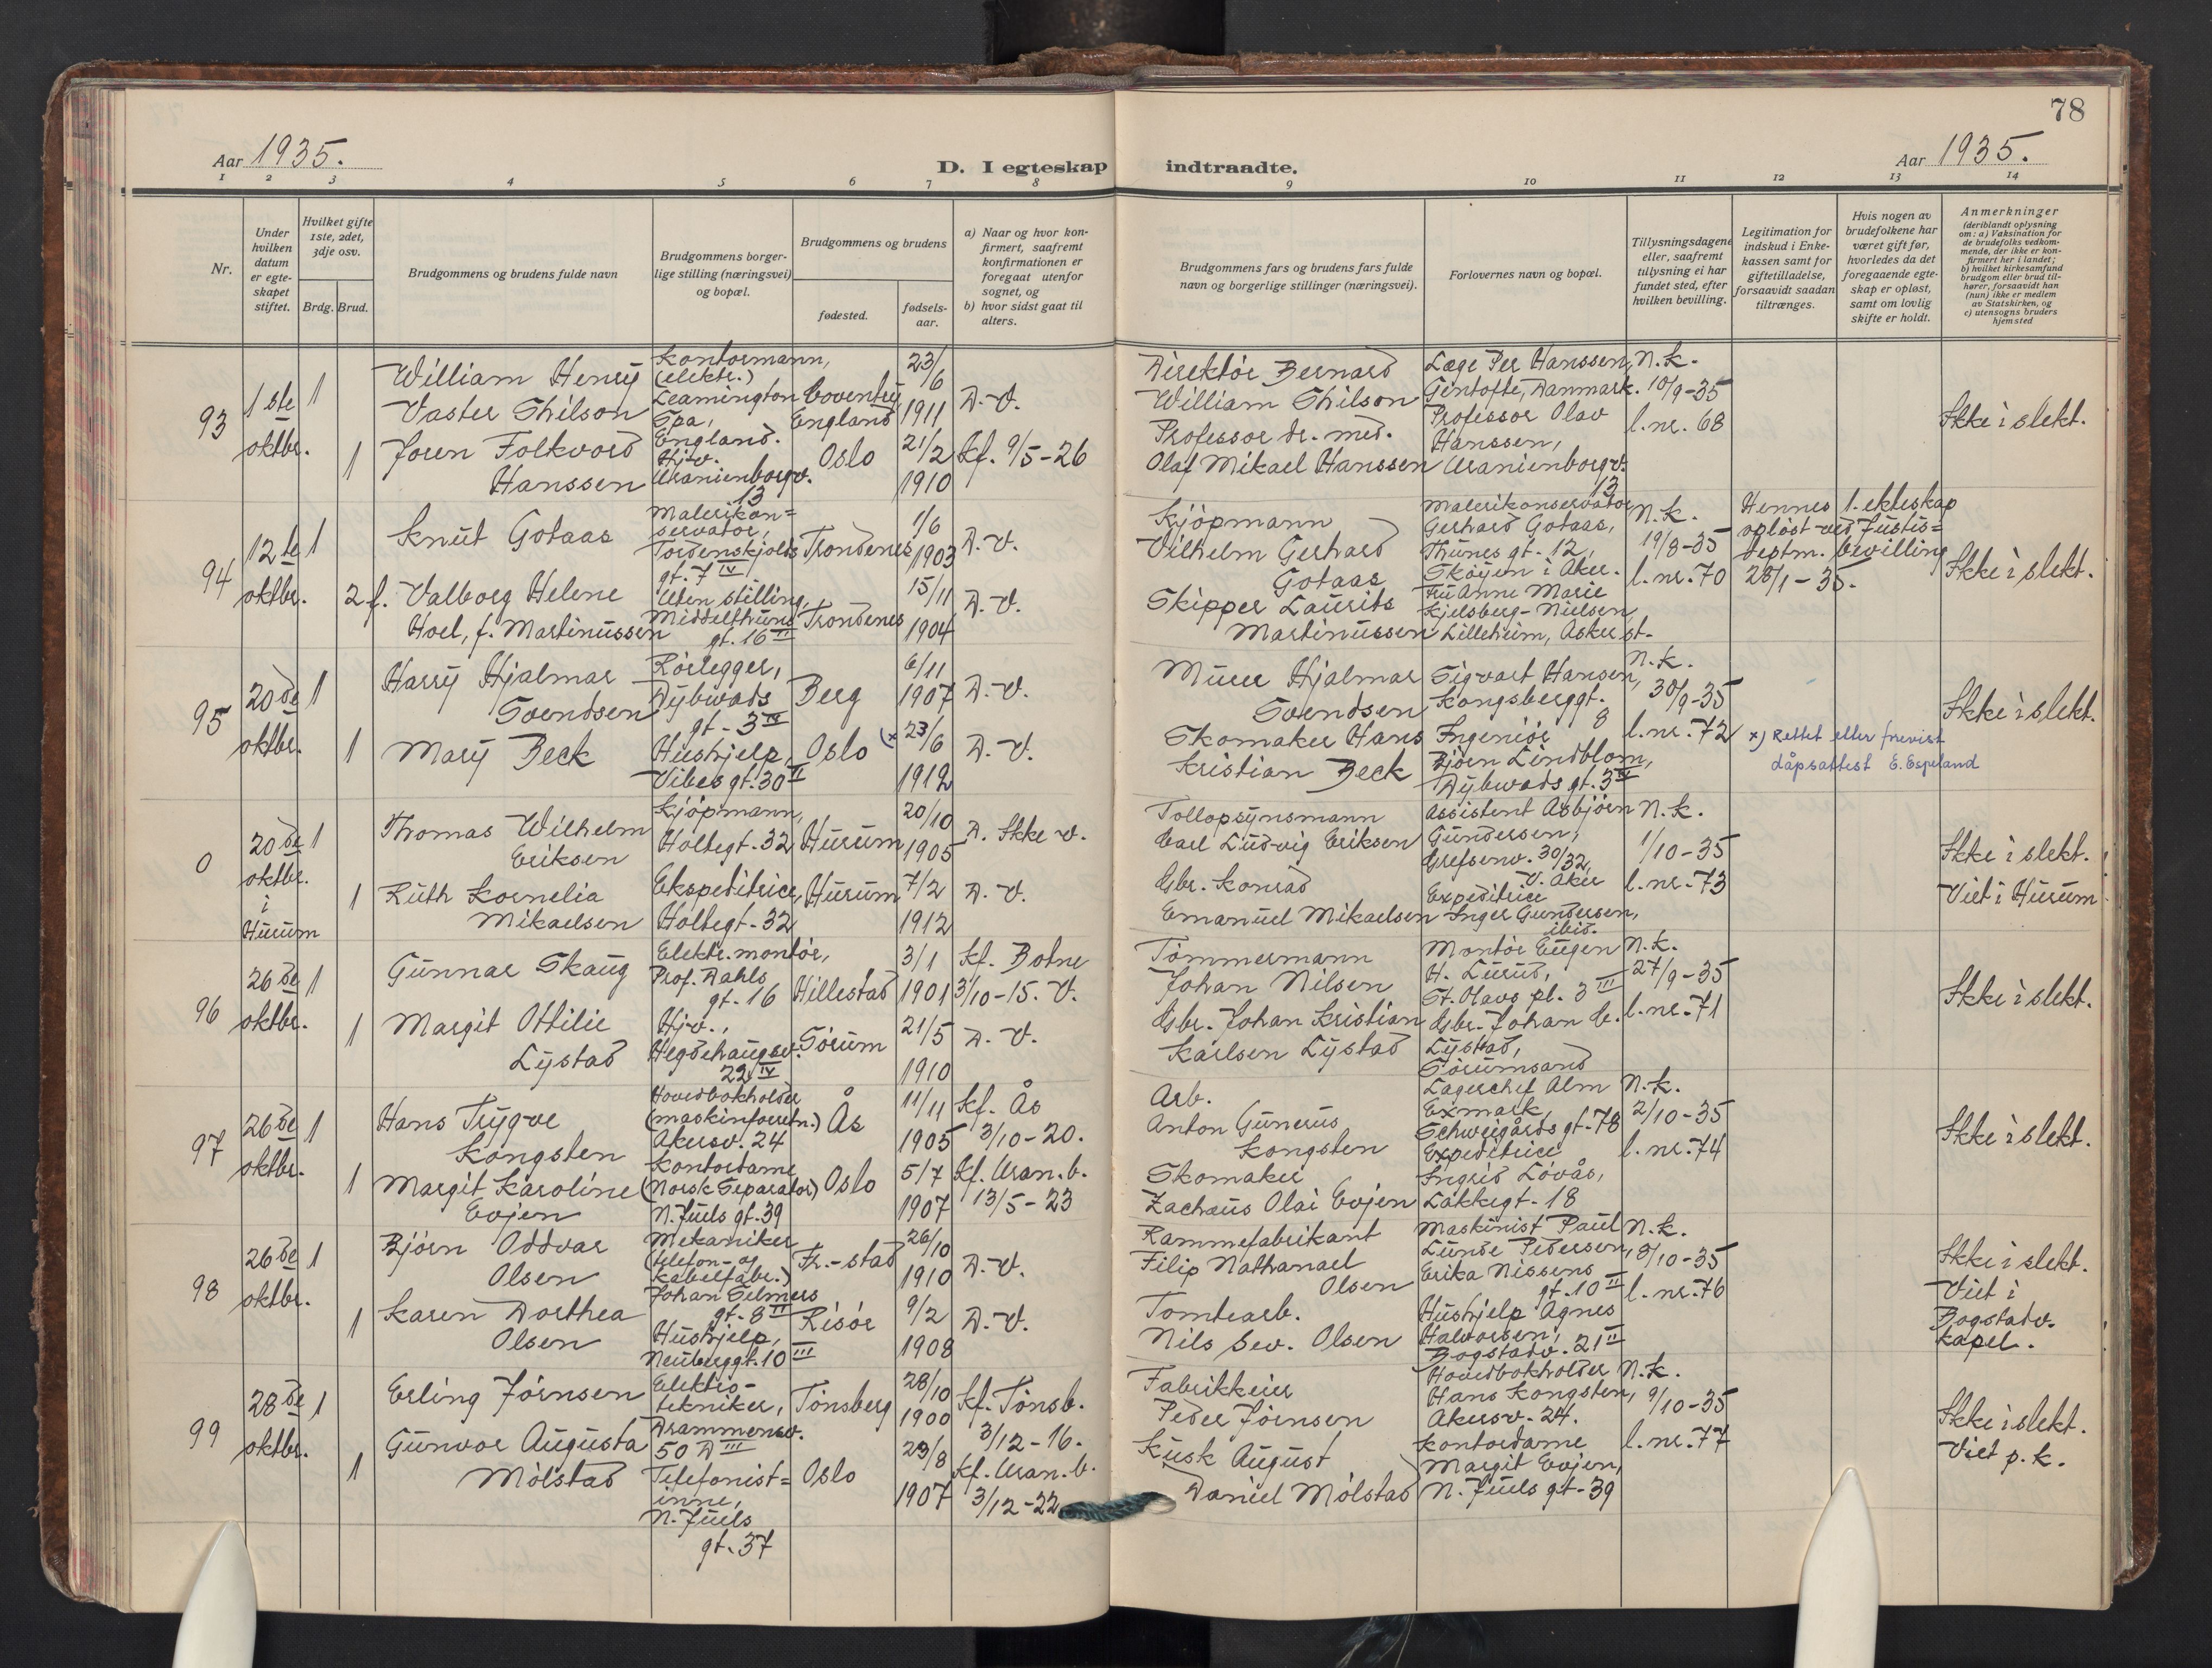 78
Aar 1935.
D. I egteskap indtraadte.
Aar 1935.
1 2 3 4 5 6 7 8 9 10 11 12 13 14
Nr.
Under hvilken datum er egteskapet stiftet.
Hvilket gifte 1ste, 2det, 3dje osv.
Brdg. Brud.
Brudgommens og brudens fulde navn
Brudgommens borgerlige stilling (næringsvei) og bopæl.
Brudgommens og brudens
fødested.
fødselsaar.
a) Naar og hvor konfirmert, saafremt konfirmationen er foregaat utenfor sognet, og
b) hvor sidst gaat til alters.
Brudgommens fars og brudens fars fulde navn og borgerlige stillinger (næringsvei).
Forlovernes navn og bopæl.
Tillysningsdagene eller, saafremt tillysning ei har fundet sted, efter hvilken bevilling.
Legitimation for indskud i Enkekassen samt for giftetilladelse, forsaavidt saadan tiltrænges.
Hvis nogen av brudefolkene har været gift før, hvorledes da det foregaaende egteskap er opløst, samt om lovlig skifte er holdt.
Anmerkninger
(deriblandt oplysning om: a) Vaksination for de brudefolks vedkommende, der ikke er konfirmert her i landet;
b) hvilket kirkesamfund brudgom eller brud tilhører, forsaavidt han (hun) ikke er medlem av Statskirken, og
c) utensogns bruders hjemsted
93
1ste
oktbr.
1
William Henry
Vaster Shilson
Kontormann,
(elektr.)
Leamington
Spa,
England.
Coventry
England
23/6
1911
D. V.
Direktør Bernard
William Shilson
Læge Per Hanssen,
Gentofte, Danmark.
N.k.
10/9-35
l. nr. 68
Ikke i slekt.
1
Joren Folkvord
Hanssen
Hjv.
Uranienborgv.
13
Oslo
21/2
1910
Kf. 9/5-26
Professor dr. med.
Olaf Mikael Hanssen
Professor Olav
Hanssen,
Uranienborgv.
13
94
12te
oktbr.
1
Knut Gotaas
Malerikon=
servator,
Tordenskjolds
gt. 7 IV
Trondenes
1/6
1903
D. V.
Kjøpmann
Vilhelm Gerhard
Gotaas
Malerikonservator
Gerhard Gotaas,
Thunes gt. 12,
Skøyen i Aker.
N.k.
19/8-35
l. nr. 70
Hennes 1. ekteskap
opløst ved Justis=
deptm. bevilling
28/1-35.
Ikke i slekt.
2 f.
Valborg Helene
Hoel, f. Martinussen
Uten stilling,
Middelthuns
gt. 16 II
Trondenes
15/11
1904
D. V.
Skipper Laurits
Martinussen
Fru Anne Marie
Kjelsberg-Nielsen
Lilleheim, Asker st.
95
20de
oktbr.
1
Harry Hjalmar
Svendsen
Rørlegger,
Dybwads
gt. 3 IV
Berg
6/11
1907
D. V.
Murer Hjalmar
Svendsen
Sigvart Hansen,
Kongsberggt.
8
N.k.
30/9-35
l. nr. 72
Ikke i slekt.
1
Mary Beck
Hushjelp,
Vibes gt. 30 II
Oslo
(x 23/6
1912
D. V.
Skomaker Hans
Kristian Beck
Ingeniør
Bjørn Lindblom,
Dybwads gt. 3 IV
x) Rettet efter frevist
dåpsattest E. Espeland
0
20de
oktbr.
i
Hurum
1
Thomas Wilhelm
Eriksen
Kjøpmann,
Holtegt. 32
Hurum
20/10
1905
D. Ikke v.
Tollopsynsmann
Carl Ludvig Eriksen
Assistent Asbjørn
Gundersen,
Grefsenv. 30/32,
V. Aker
N.k.
1/10-35
l. nr. 73
Ikke i slekt.
Viet i Hurum
1
Ruth Kornelia
Mikaelsen
Ekspeditrice,
Holtegt. 32
Hurum
7/2
1912
D. V.
Gbr. Konrad
Emanuel Mikaelsen
Expeditrice
Inger Gundersen,
ibid.
96
26de
oktbr.
1
Gunnar Skaug
Elektr. montør,
Prof. Dahls
gt. 16
Hillestad
3/1
1901
Kf. Botne
3/10-15. V.
Tømmermann
Johan Nilsen
Montør Eugen
H. Lurud,
St. Olavs pl. 3 III
N.k.
27/9-35
l. nr. 71
Ikke i slekt.
1
Margit Ottilie
Lystad
Hjv.,
Hegdehaugsv.
22 IV
Sørum
21/5
1910
D. V.
Gbr. Johan Kristian
Karlsen Lystad
Gbr. Johan C.
Lystad,
Sørumsand
97
26de
oktbr.
1
Hans Trygve
Kongsten
Hovedbokholder
(maskinforretn.)
Akersv. 24
Ås
11/11
1905
Kf. Ås
3/10-20.
Arb.
Anton Gunerus
Kongsten
Lagerchef Alm
Exmark,
Schweigårds gt. 78
N.k.
2/10-35
l. nr. 74
Ikke i slekt.
1
Margit Karoline
Evjen
Kontordame
(Norsk Separator)
N. Juels gt. 39
Oslo
5/7
1907
Kf. Uran.b.
13/5-23
Skomaker
Zachæus Olai Evjen
Expeditrice
Ingrid Løvås,
Lakkegt. 18
98
26de
oktbr.
1
Bjørn Oddvar
Olsen
Mekaniker
(telefon- og
kabelfabr.)
Johan Selmers
gt. 8 II
Fr.-stad
26/10
1910
D. V.
Rammefabrikant
Filip Nathanael
Olsen
Maskinist Paul
Lunde Pedersen,
Erika Nissens
gt. 10 II
N.k.
8/10-35
l. nr. 76
Ikke i slekt.
Viet i
Bogstadv.
kapel.
1
Karen Dorthea
Olsen
Hushjelp,
Neuberggt. 10 III
Risør
9/2
1908
D. V.
Tomtearb.
Nils Sev. Olsen
Hushjelp Agnes
Halvorsen,
Bogstadv. 21 II
99
28de
oktbr.
1
Erling Jørnsen
Elektro-
tekniker,
Drammensv.
50 D III
Tønsberg
28/10
1900
Kf. Tønsb.
3/12-16.
Fabrikkeier
Peder Jørnsen
Hovedbokholder
Hans Kongsten,
Akersv. 24.
N.k.
9/10-35
l. nr. 77
Ikke i slekt.
Viet p. k.
1
Gunvor Augusta
Mølstad
Telefonist=
inne,
N. Juels
gt. 37
Oslo
29/8
1907
Kf. Uran.b.
3/12-22
Kusk August
Daniel Mølstad
Kontordame
Margit Evjen,
N. Juels gt. 39